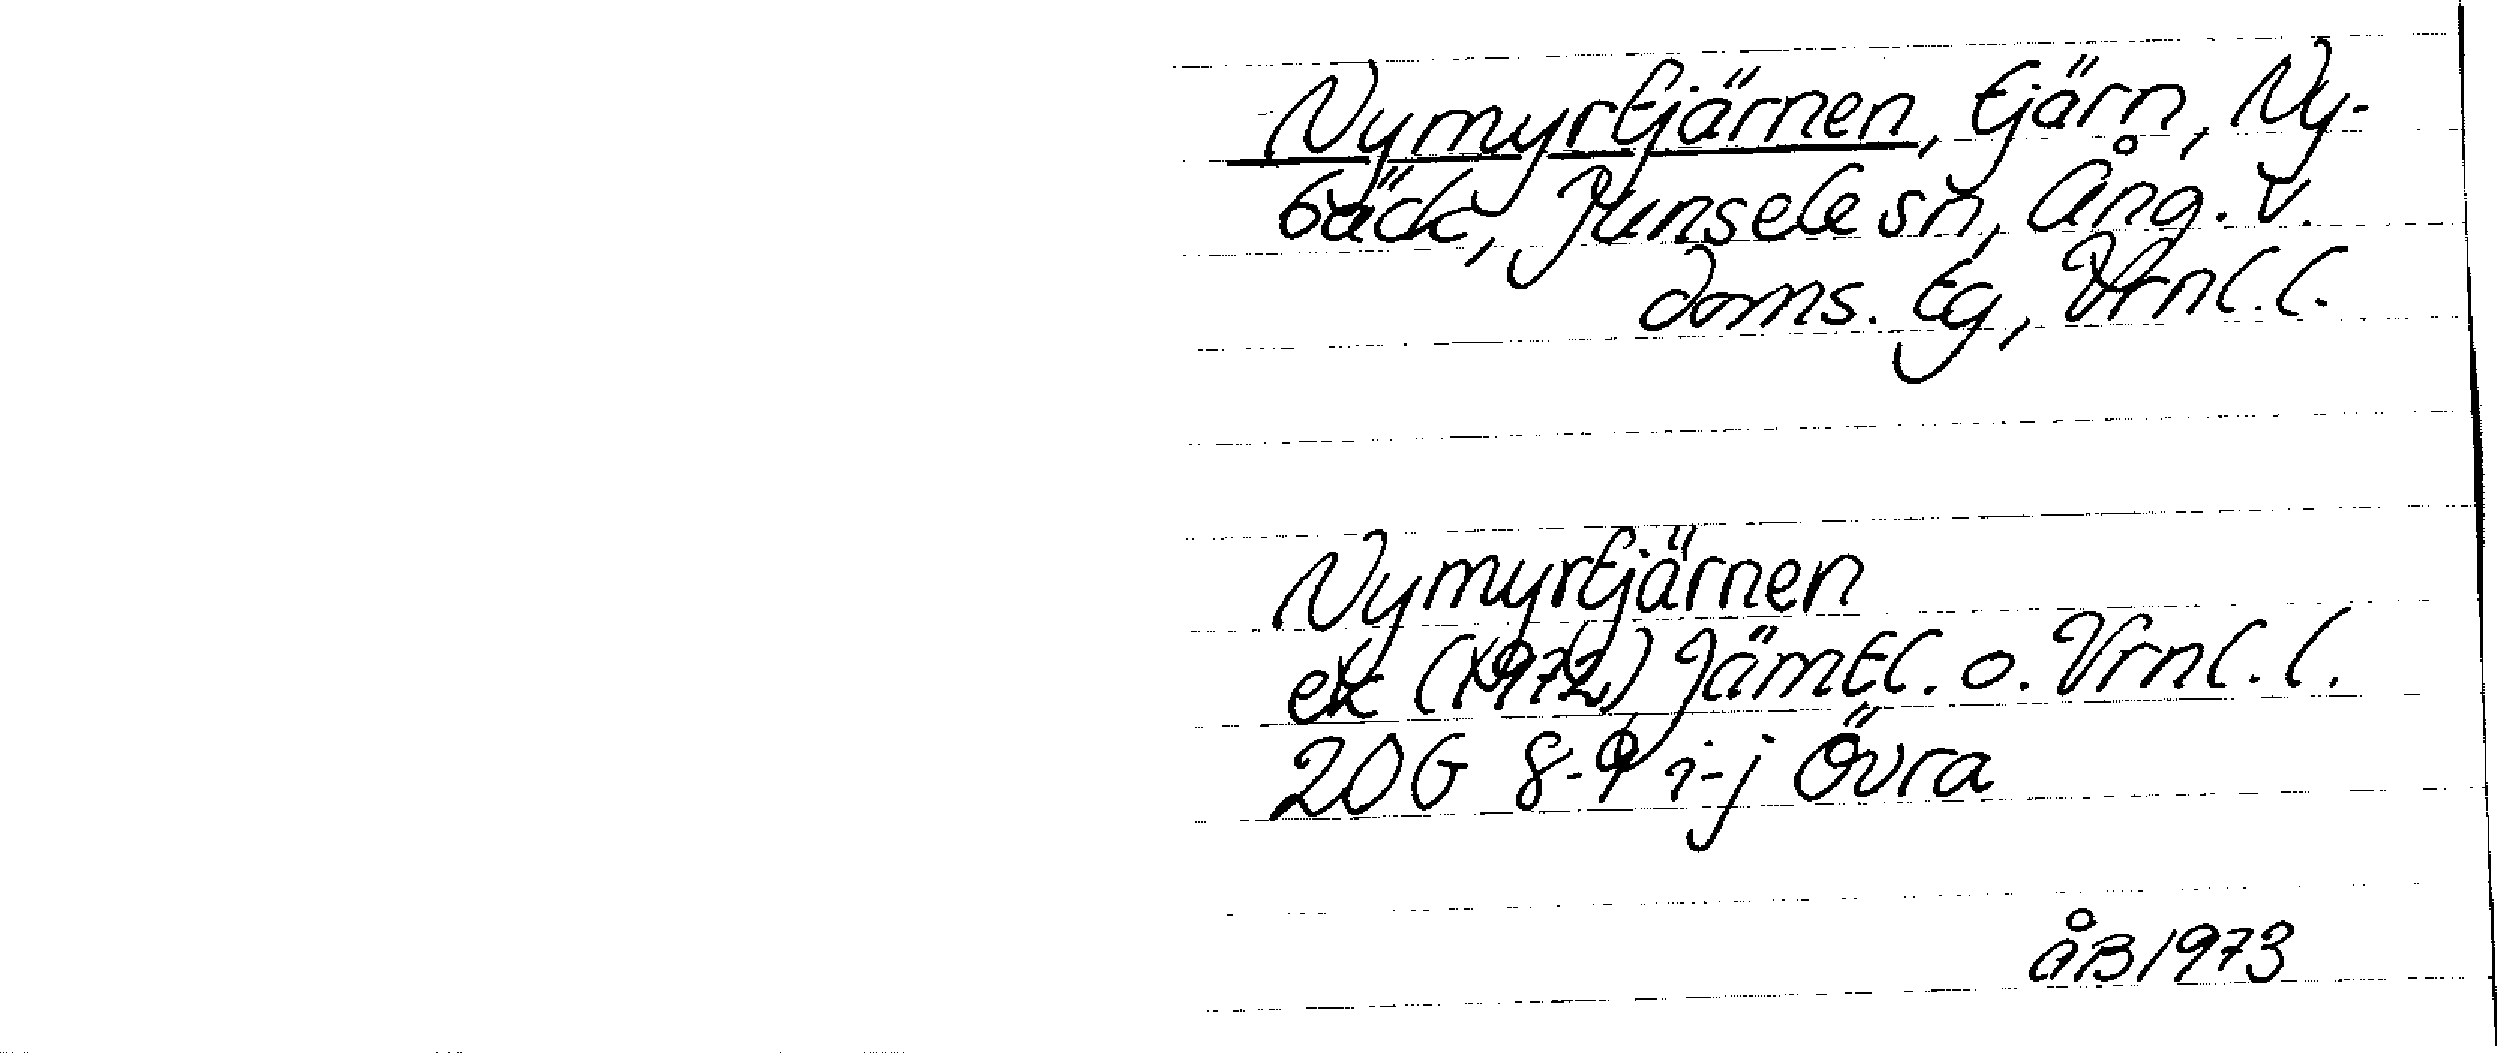 Nymyrtjärnen, tjärn, Ny-
bäck, Junsele sn, Ång. v.
doms. tg, Vrnl. l.
Nymyrtjärnen
ek (1972) Jämtl. o. Vrnl. l.
20G 8-9 i-j Övra
ÅB 1973